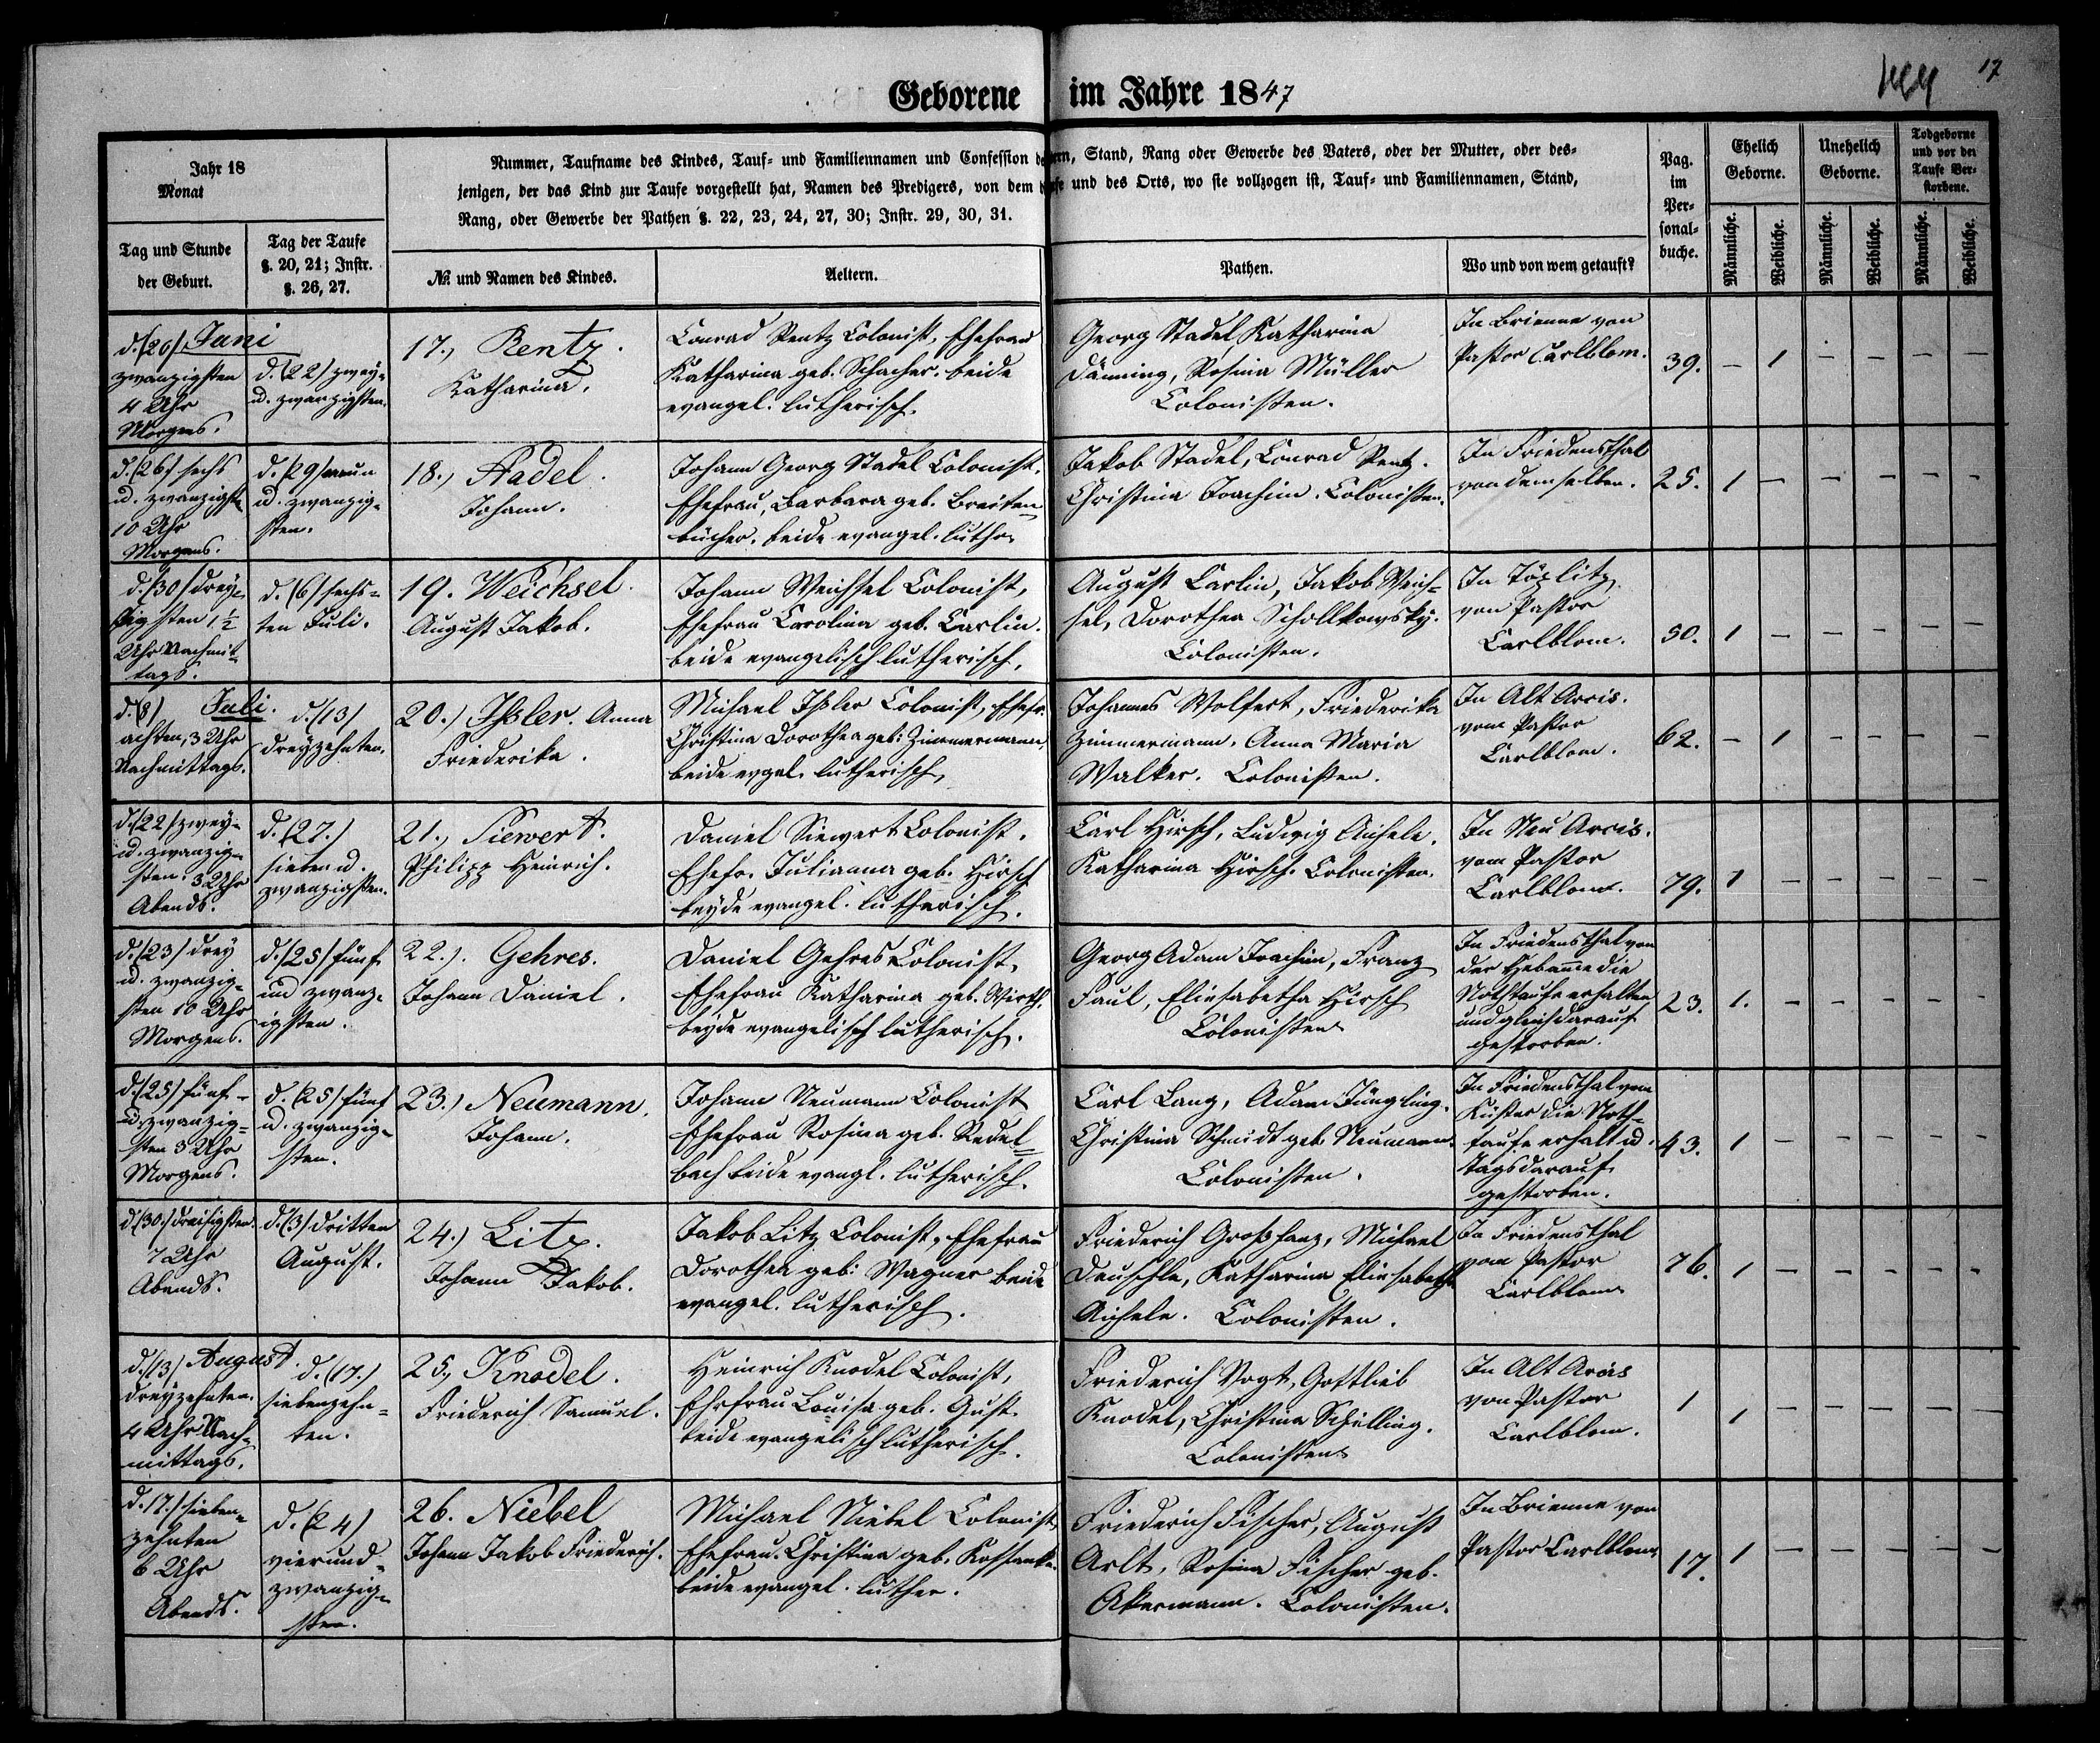 17
Geborene im Jahre 1847
Jahr 18
Monat
Nummer, Taufname des Kindes, Tauf- und Familiennamen und Confession der Aeltern, Stand, Rang oder Gewerbe des Vaters, oder der Mutter, oder des-
jenigen, der das Kind zur Taufe vorgestellt hat, Namen des Predigers, von dem die Taufe und des Orts, wo sie vollzogen ist, Tauf- und Familiennamen, Stand,
Rang, oder Gewerbe der Pathen §. 22, 23, 24, 27, 30; Instr. 29, 30, 31.
Tag und Stunde
der Geburt.
Tag der Taufe
§. 20, 21; Instr.
§. 26, 27.
№ und Namen des Kindes.
Aeltern.
Pathen.
Wo und von wem getauft?
Pag.
im
Per-
sonal-
buche.
Ehelich
Geborne.
Unehelich
Geborne.
Todgeborne
und vor der
Taufe Ver-
storbene.
Männliche.
Weibliche.
Männliche.
Weibliche.
Männliche.
Weibliche.
Juni
d. (20)
zwanzigsten
4 Uhr
Morgens.
d. (22) zwey-
u. zwanzigsten.
17., Rentz.
Katharina.
Conrad Rentz Colonist, Ehefrau
Katharina geb. Schacher. beide
evangel. lutherisch.
Georg Stadel Katharina
Dänning, Rosina Müller
Colonisten.
In Brienne von
Pastor Carlblom.
39. – 1 – – – –
d. (26) sechs
u. zwanzigst.
10 Uhr
Morgens.
d. (29) neun
u. zwanzig-
sten.
18., Stadel.
Johann.
Johann Georg Stadel Colonist.
Ehefrau, Barbara geb. Breiten
bücher. beide evangel. luther
Jakob Stadel, Conrad Rentz.
Christina Joachim. Colonisten.
In Friedensthal
von demselben.
25. 1 – – – – –
d. (30) drey-
ßigsten 1½
Uhr Nachmit-
tags.
d. (6) sechs-
ten Juli.
19. Weichsel.
August Jakob.
Johann Weichsel Colonist,
Ehefrau Carolina geb. Carlin.
beide evangelisch lutherisch.
August Carlin, Jakob Weich-
sel, Dorothea Schollkowsky.
Colonisten.
In Töplitz,
von Pastor
Carlblom.
50. 1 – – – – –
Juli.
d. (8)
achten, 3 Uhr
Nachmittags.
d. (13)
dreyzehnten.
20.) Ißler. Anna
Friederika.
Michael Ißler Colonist, Ehefr.
Christina Dorothea geb: Zimmermann,
beide evgel. lutherisch,
Johannes Wolfert, Friederika
Zimmermann, Anna Maria
Walker. Colonisten.
In Alt Arcis.
vom Pastor
Carlblom.
62. – 1 – – – –
d. (22) zwey-
u. zwanzig-
sten. 3 Uhr
Abends.
d. (27.)
sieben u.
zwanzigsten.
21., Siewert.
Philipp Heinrich.
Daniel Siewert Colonist.
Ehefr. Julianna geb. Hirsch
beyde evangel. lutherisch.
Carl Hirsch, Ludwig Aichele.
Katharina Hirsch. Colonisten.
In Neu Arcis.
vom Pastor
Carlblom.
79. 1 – – – – –
d. (23) drey
u. zwanzig-
sten 10 Uhr
Morgens.
d. (25) fünf
und zwanz-
igsten.
22.). Gehres.
Johann Daniel.
Daniel Gehres Colonist,
Ehefrau Katharina geb. Wirth.
beyde evangelisch lutherisch.
Georg Adam Joachim, Franz
Paul, Eliesabetha Hirsch
Colonisten
In Friedensthal von
der Hebamme die
Nothtaufe erhalten
und gleich darauf
gestorben.
23. 1. – – – – –
d. (25) fünf-
u. zwanzig-
sten 3 Uhr
Morgens.
d. (25) fünf
u. zwanzig-
sten.
23.) Neumann.
Johann.
Johann Neumann Colonist
Ehefrau Rosina geb. Redel-
bach beide evangl. lutherisch.
Carl Lang, Adam Jüngling.
Christina Schmidt geb. Neumann.
Colonisten.
In Friedensthal vom
Küster die Noth-
taufe erhalt. u.
Tags darauf
gestorben.
43. 1 – – – – –
d. (30.) dreisigsten.
7 Uhr
Abends.
d. (3) dritten
August.
24.) Litz.
Johann Jakob.
Jakob Litz Colonist, Ehefrau
Dorothea geb: Wagner beide
evangel. lutherisch.
Friederich Großhanz, Michael
Deuschle, Katharina Eliesabeth
Aichele. Colonisten.
In Friedensthal
vom Pastor
Carlblom
76. 1 – – – – –
August.
d. (13)
dreyzehnten.
4 Uhr Nach-
mittags.
d. (17.)
siebenzehn-
ten.
25., Knodel.
Friederich Samuel.
Heinrich Knodel Colonist,
Ehefrau Louisa geb. Gust.
beide evangelisch lutherisch.
Friederich Vogt, Gottlieb
Knodel, Christina Schilling.
Colonisten
In Alt Arcis
von Pastor
Carlblom.
1 1 – – – – –
d. 17.) sieben-
zehnten
6 Uhr
Abends.
d. (24)
vierund-
zwanzig-
sten.
26. Niebel
Johann Jakob Friederich.
Michael Niebel Colonist,
Ehefrau. Christina geb.
beide evangel. luther.
Friederich Fischer, August
Arlt, Rosina Fischer geb.
Akermann. Colonisten.
In Brienne von
Pastor Carlblom
17. 1 – – – – –